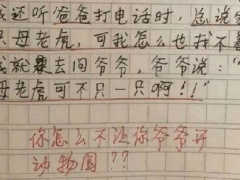 我还听爸爸打电话时,总说家
只母老虎,可我怎么也找不着
我就去问爷爷,爷爷说:"
母老虎可不只一只啊!!"
你怎么不让你爷爷开
动物园??